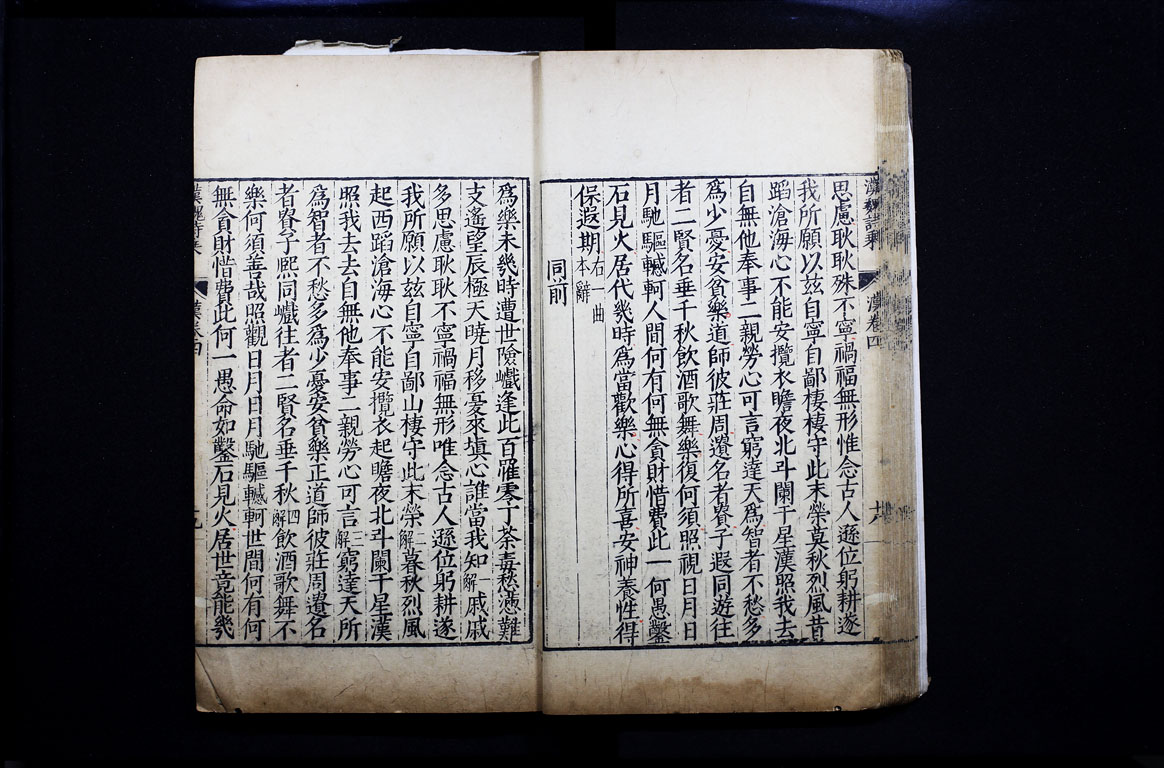 漢魏詩乘 漢卷四
思慮耿耿殊不寧禍福無形惟念古人遜位躬耕遂
我所願以茲自寧自鄙棲棲守此末榮莫秋烈風昔
蹈滄海心不能安攬衣瞻夜北斗闌干星漢照我去
自無他奉事二親勞心可言窮達天爲智者不愁多
爲少憂安貧樂道師彼莊周遺名者貴子遐同遊往
者二賢名垂千秋飲酒歌舞樂復何須照視日月日
月馳驅轗軻人間何有何無貪財惜費此一何愚鑿
石見火居代幾時爲當歡樂心得所喜安神養性得
保遐期右一曲本辭
同前
爲樂未幾時遭世險巇逢此百罹零丁荼毒愁懣難
支遙望辰極天曉月移憂來塡心誰當我知一解戚戚
多思慮耿耿不寧禍福無形唯念古人遜位躬耕遂
我所願以茲自寧自鄙山棲守此末榮二解暮秋烈風
起西蹈滄海心不能安攬衣起瞻夜北斗闌干星漢
照我去去自無他奉事二親勞心可言三解窮達天所
爲智者不愁多爲少憂安貧樂正道師彼莊周遺名
者貴子熙同巇往者二賢名垂千秋四解飲酒歌舞不
樂何須善哉照觀日月日月馳驅轗軻世間何有何
無貪財惜費此何一愚命如鑿石見火居世竟能幾